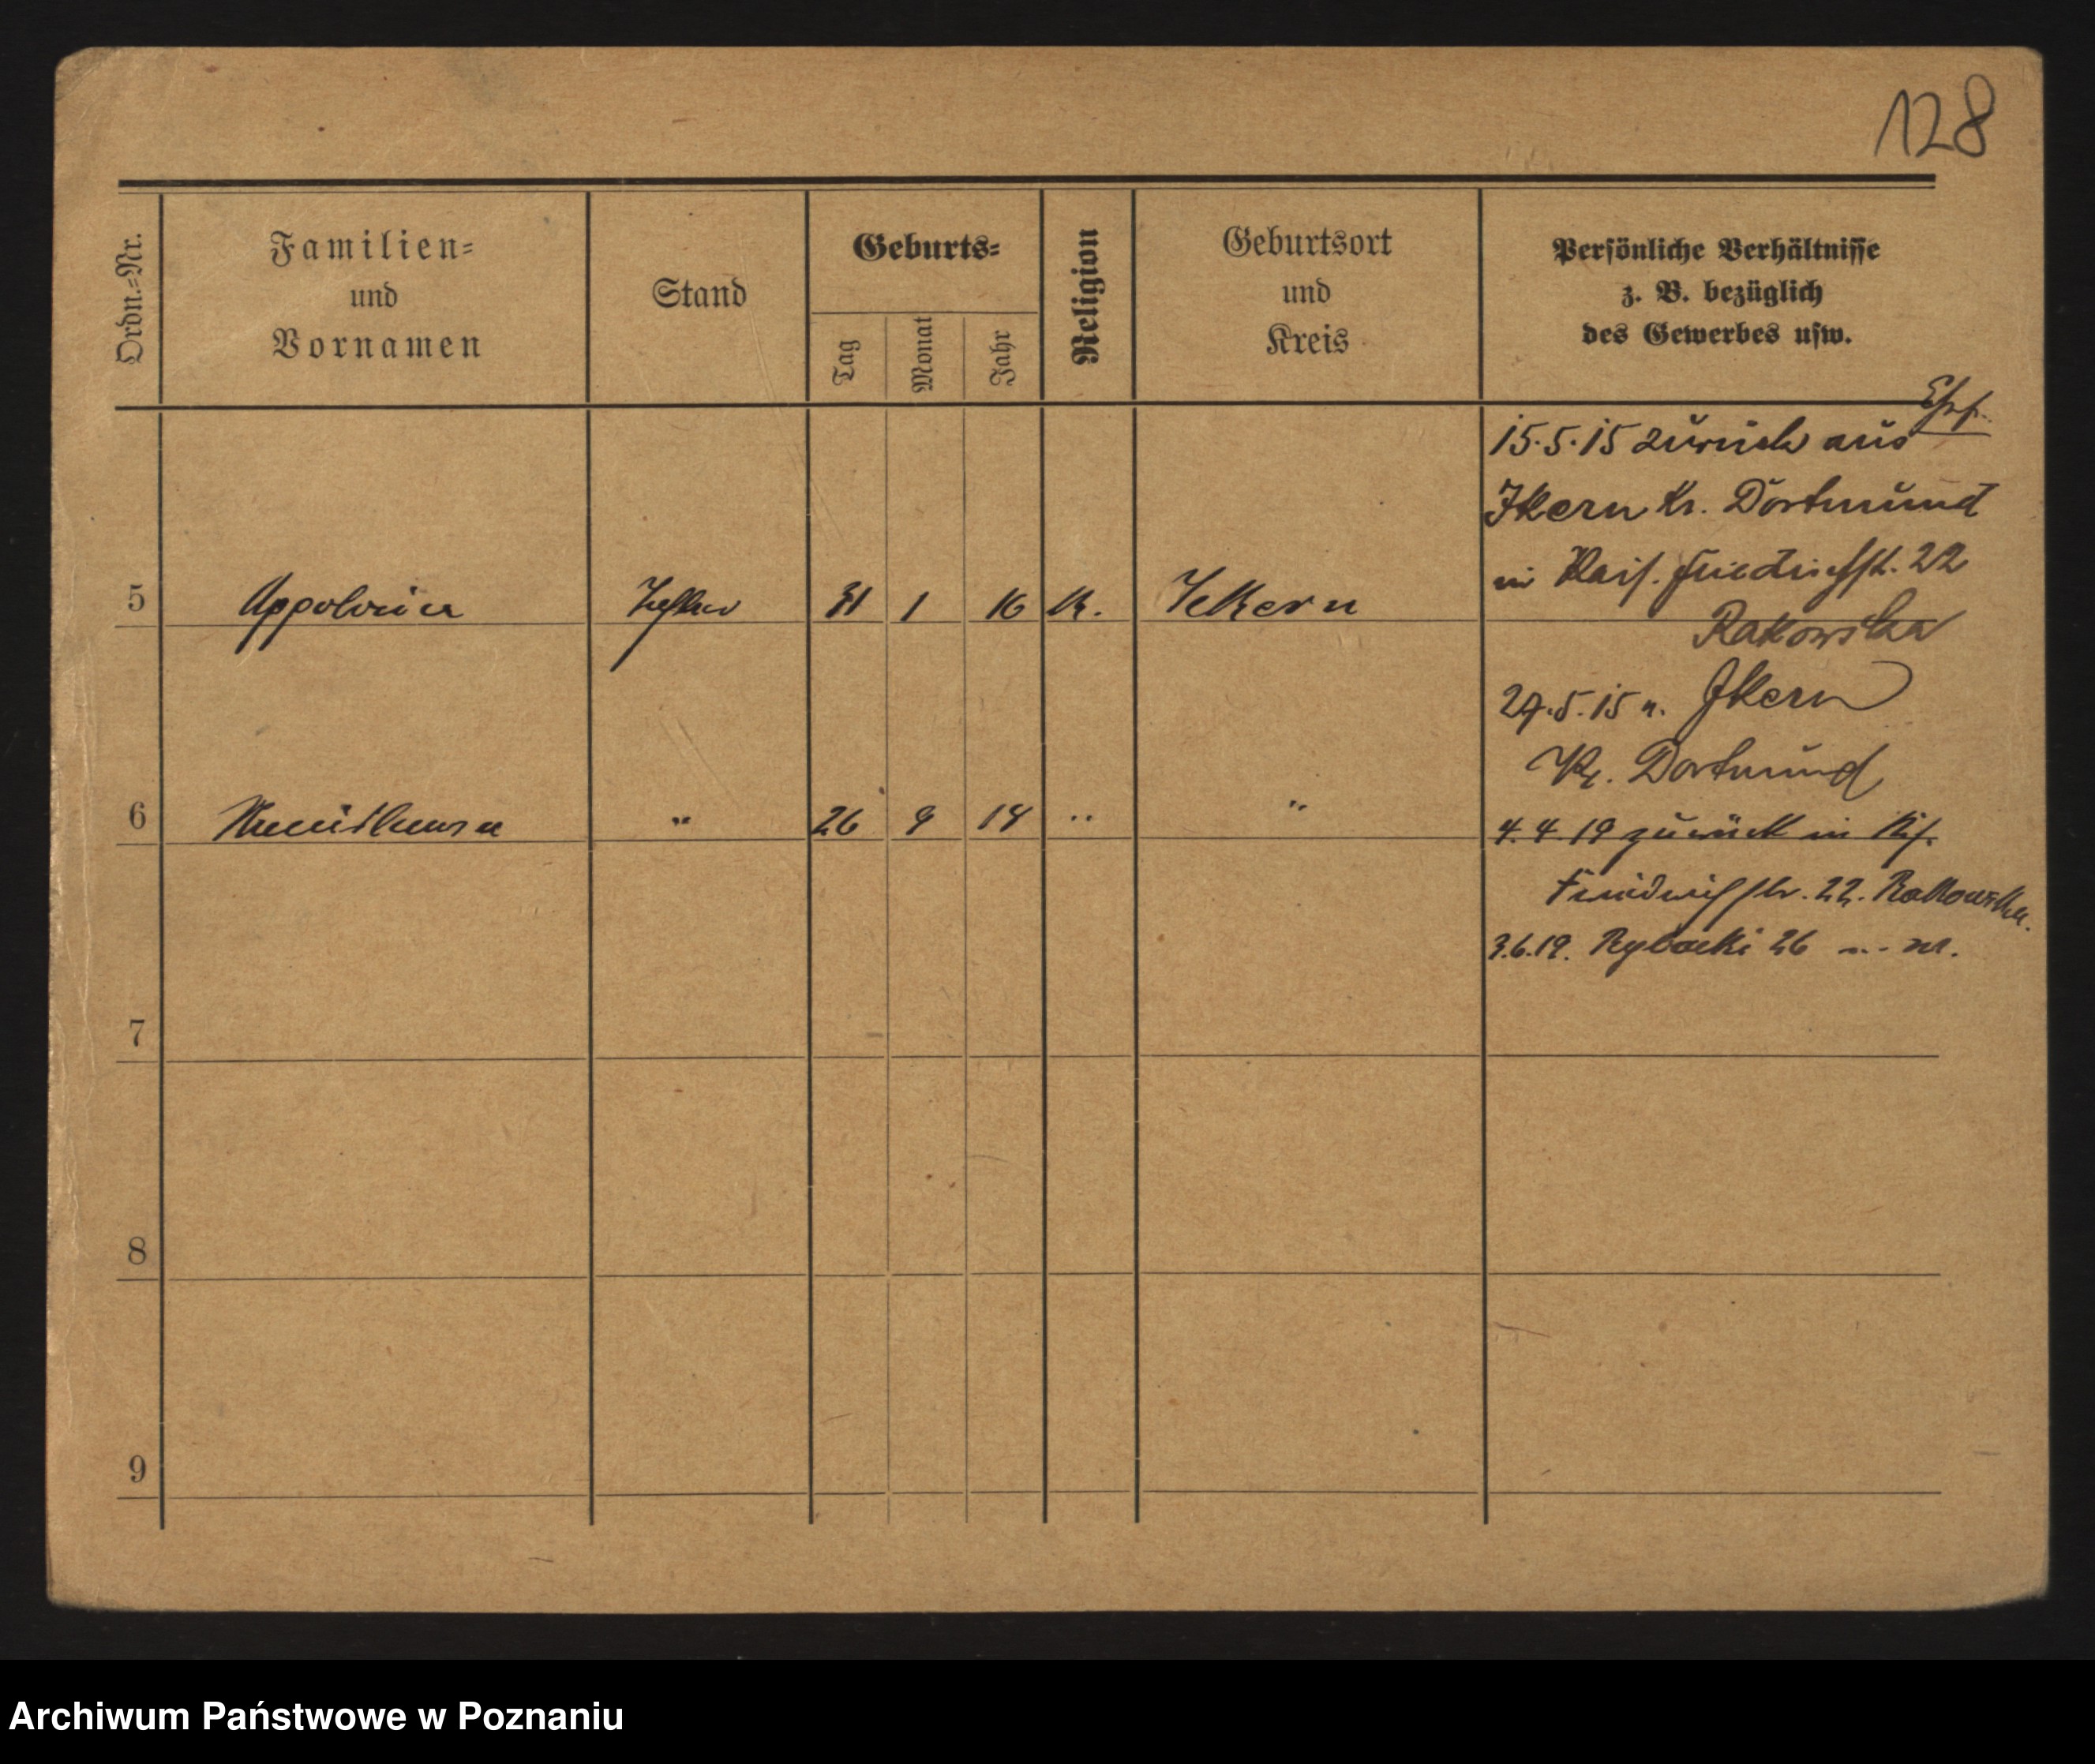 128
Ordn.-Nr.
Familien-
und
Vornamen
Stand
Geburts-
Tag
Monat
Jahr
Religion
Geburtsort
und
Kreis
Persönliche Verhältnisse
z. B. bezüglich
des Gewerbes usw.
15.5.15 zurück aus
Ikern Kr. Dortmund
in Kais. Friedrichstr. 22
Rakowska
5 Appolonia Tochter 31 1 16 K. Ickern
29.5.15 n. Ikern
Kr. Dortmund
6 " 26 9 14 " "
4.4.19 zurück in Kf.
Friedrichstr. 22. Rakowska.
3.6.19. Rybacki 26
7
8
9
Archiwum Państwowe w Poznaniu